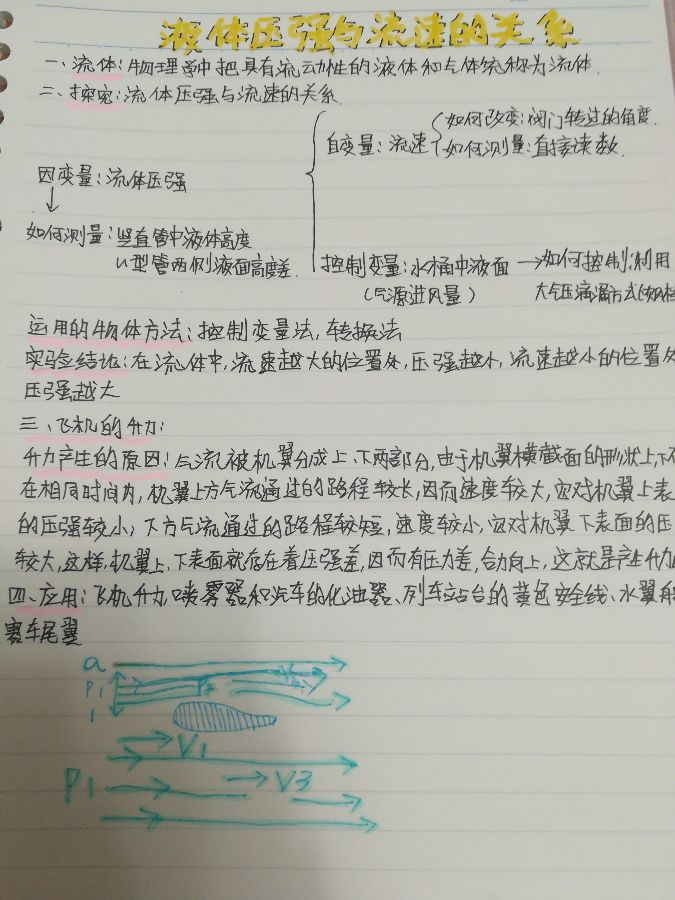 液体压强与流速的关系
一、流体:物理学中把具有流动性的液体和气体统称为流体.
二、探究:流体压强与流速的关系.
因变量:流体压强
↓
如何测量:竖直管中液体高度
U型管两侧液面高度差.
自变量:流速
如何改变:阀门转过的角度.
如何测量:直接读数.
控制变量:水桶中液面→如何控制:利用
(气源进风量) 大气压滴漏方式
运用的物体方法:控制变量法,转换法
实验结论:在流体中,流速越大的位置处,压强越小,流速越小的位置处
压强越大
三、飞机的升力:
升力产生的原因:气流被机翼分成上、下两部分,由于机翼横截面的形状上,下不
在相同时间内,机翼上方气流通过的路程较长,因而速度较大,它对机翼上表
的压强较小;下方气流通过的路程较短,速度较小,它对机翼下表面的压
较大,这样,机翼上、下表面就存在着压强差,因而有压力差,合力向上,这就是产生升力
四、应用:飞机升力、喷雾器和汽车的化油器、列车站台的黄色安全线、水翼船
赛车尾翼
a
P1
1
V1
P1
V3